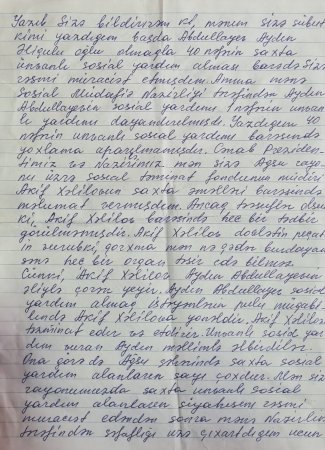 Yazıb Sizə bildirirəm ki, mənim sizə sübut
kimi yazdığım başda Abdullayev Aydın
Əliqulu oğlu olmaqla 40 nəfərin saxta
ünvanlı sosial yardım alması barədə Sizə
rəsmi müraciət etmişdim. Amma mənə
Sosial Müdafiə Nazirliyi tərəfindən Aydın
Abdullayevin sosial yardımı 1 nəfərin ünvan
lı yardımı dayandırılmışdı. Yazdığım 40
nəfərin ünvanlı sosial yardımı barəsində
yoxlama aparılmamışdı. Cənab Preziden-
timiz və Nazirimiz mən sizə Ağsu rayo-
nu üzrə sosial təminat fondunun müdiri
Akif Xəlilovun saxta əməlləri barəsində
məlumat vermişdim. Ancaq təəssüflər olsun
ki, Akif Xəlilov barəsində heç bir tədbir
görülməmişdir. Akif Xəlilov dövlətin
qorxma mən nə qədər burdayam
sənə heç bir orqan təsir edə bilməz.
Çünki, Akif Xəlilov Aydın Abdullayevin
əliylə çörək yeyir. Aydın Abdullayev sosial
yardım almaq istəyənlərin pulu müqabi-
lində Akif Xəlilova yönəldir. Akif Xəlilov
təminat edir və etdirir. Ünvanlı sosial yar
dım Aydın müəllimlə əlbirdilər.
Ona görə də Ağsu şəhərində saxta sosial
yardım alanların sayı çoxdur. Mən siz
rayonumuzda saxta ünvanlı sosial
yardım alanların siyahısını rəsmi
müraciət edəndən sonra mənə Nazirliyin
tərəfindən şəffaflığı üzə çıxartdığım üçün